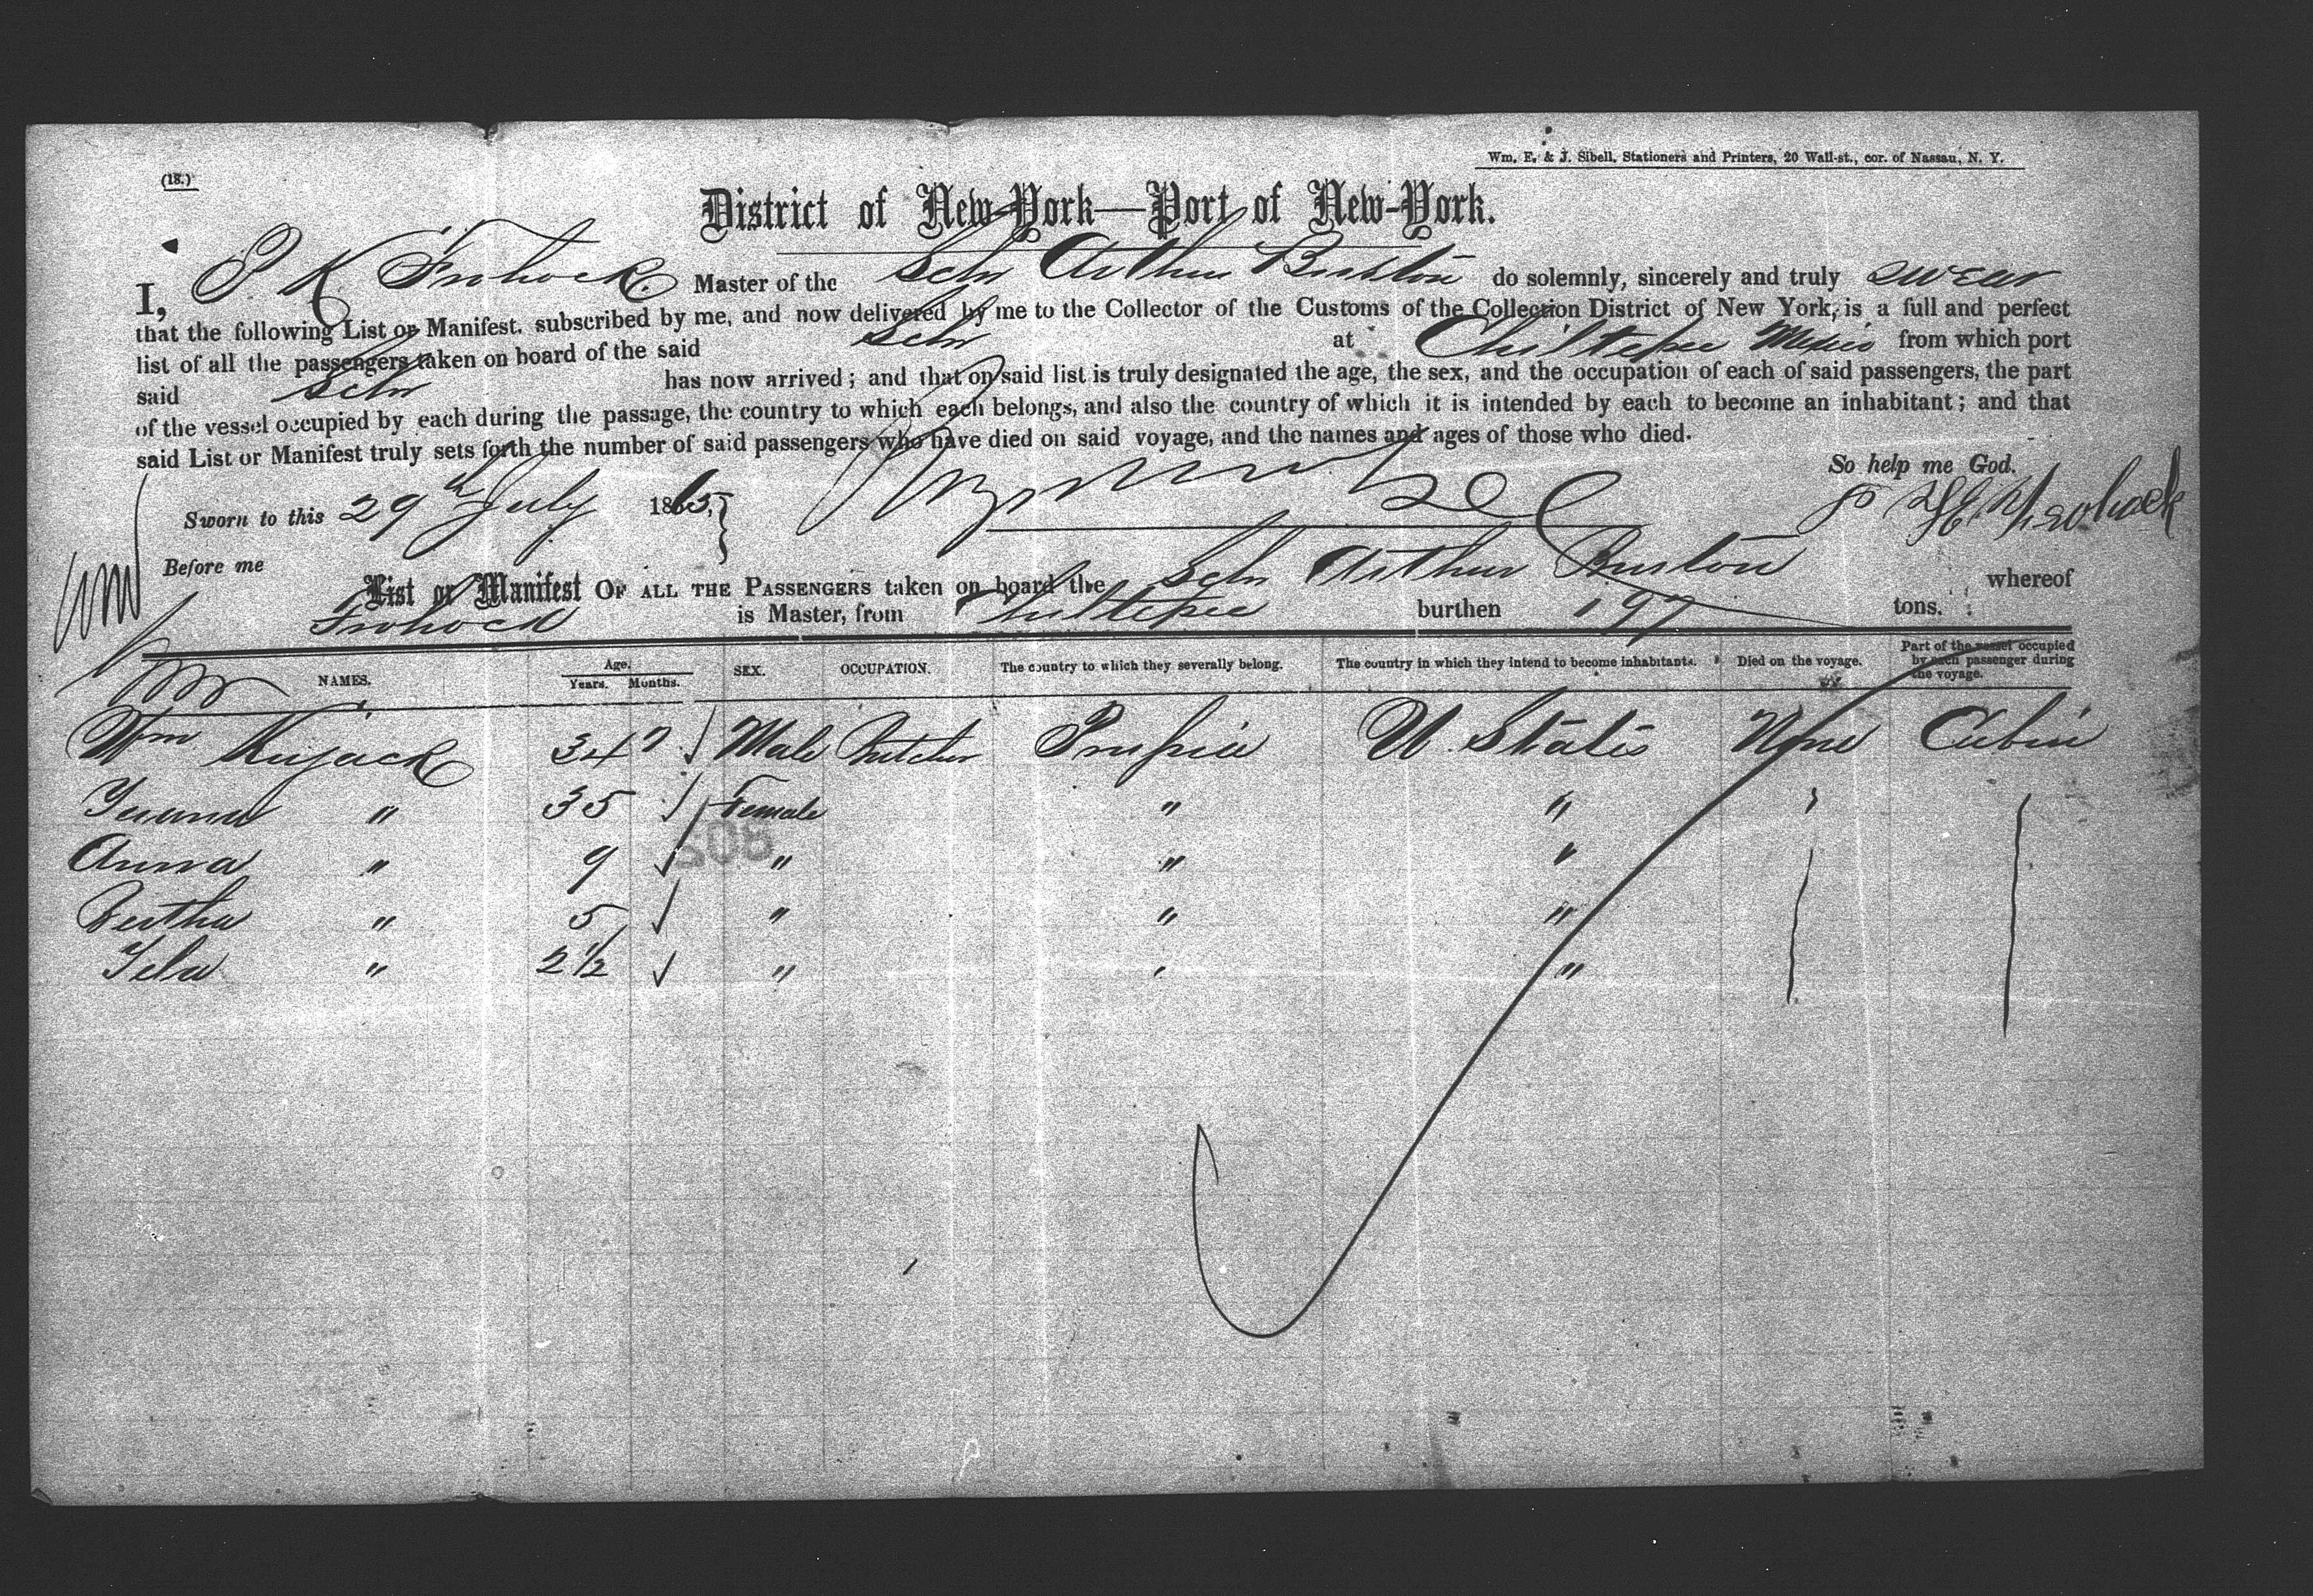 Wm. E. & J. Sibell, Stationers and Printers, 20 Wall-st., cor. of Nassau, N. Y.
(18.)
District of New-York—Port of New-York.
I, P K Frohock Master of the Schr Arthur Burton do solemnly, sincerely and truly swear
that the following List or Manifest. subscribed by me, and now delivered by me to the Collector of the Customs of the Collection District of New York, is a full and perfect
list of all the passengers taken on board of the said Schr at Chiltepec Mexico from which port
said Schr has now arrived; and that on said list is truly designated the age, the sex, and the occupation of each of said passengers, the part
of the vessel occupied by each during the passage, the country to which each belongs, and also the country of which it is intended by each to become an inhabitant; and that
said List or Manifest truly sets forth the number of said passengers who have died on said voyage, and the names and ages of those who died.
So help me God.
Sworn to this 29th July 1865, Frohock
Before me
List or Manifest OF ALL THE PASSENGERS taken on board the Schr Arthur Burton whereof
Frohock is Master, from Chiltepec burthen 197 tons.
NAMES. Age. Years. Months. SEX. OCCUPATION. The country to which they severally belong. The country in which they intend to become inhabitants. Died on the voyage. Part of the vessel occupied by each passenger during the voyage.
Wm 34 7 Male Prussia U. States None Cabin
" 35 Female " "
Anna " 9 " " "
Bertha " 5 " " "
" 2 1/2 " " "
208